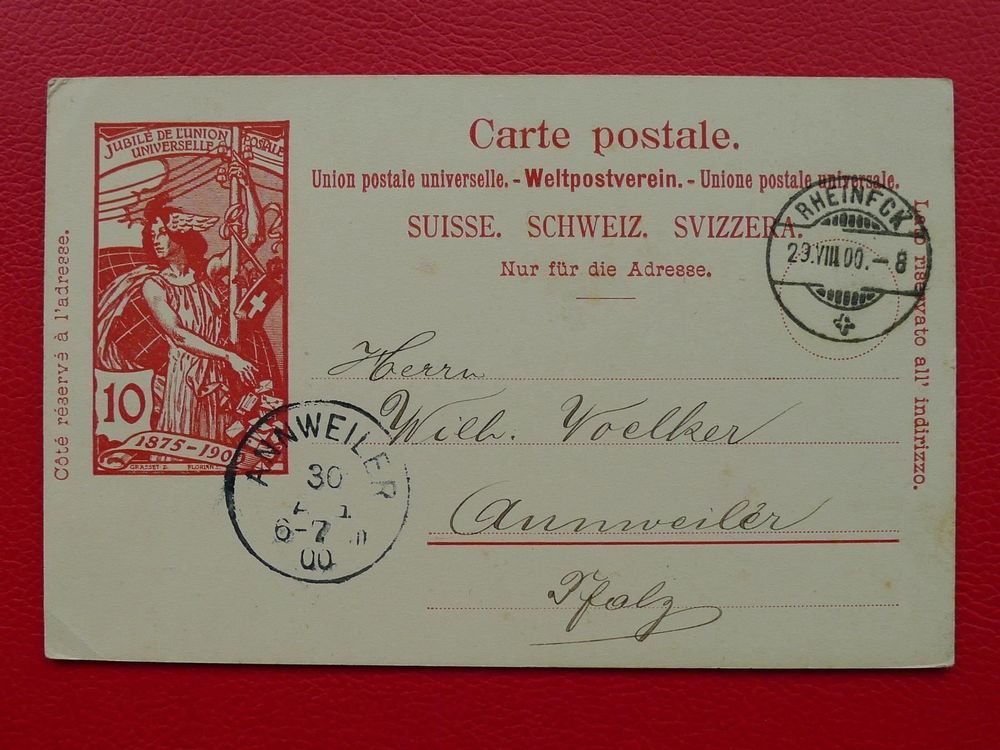 JUBILÉ DE L'UNION
UNIVERSELLE POSTALE
10
1875-1900
GRASSET D. FLORIAN
Côté réservé à l'adresse.
Carte postale.
Union postale universelle. - Weltpostverein. - Unione postale universale.
SUISSE. SCHWEIZ. SVIZZERA.
Nur für die Adresse.
Lato riservato all' indirizzo.
RHEINECK
29.VIII.00.-8
Herrn
Wilh. Voelker
Annweiler
Pfalz
ANNWEILER
30
6-7
00